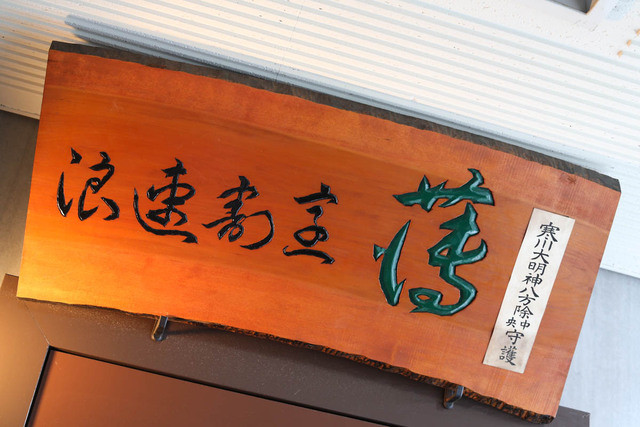 浪速割烹
薄
寒川大明神八方除中央守護